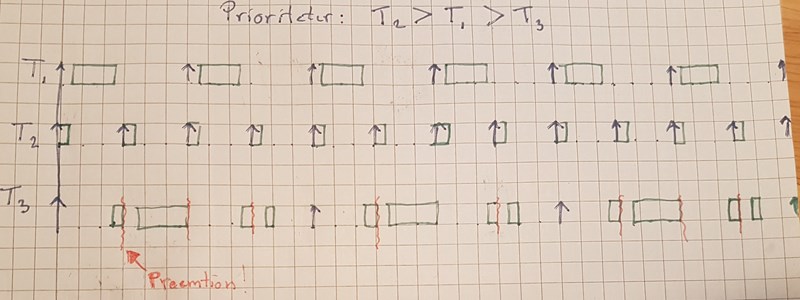 Prioritetur: T2 > T1 > T3
T1
T2
T3
Preemtion!